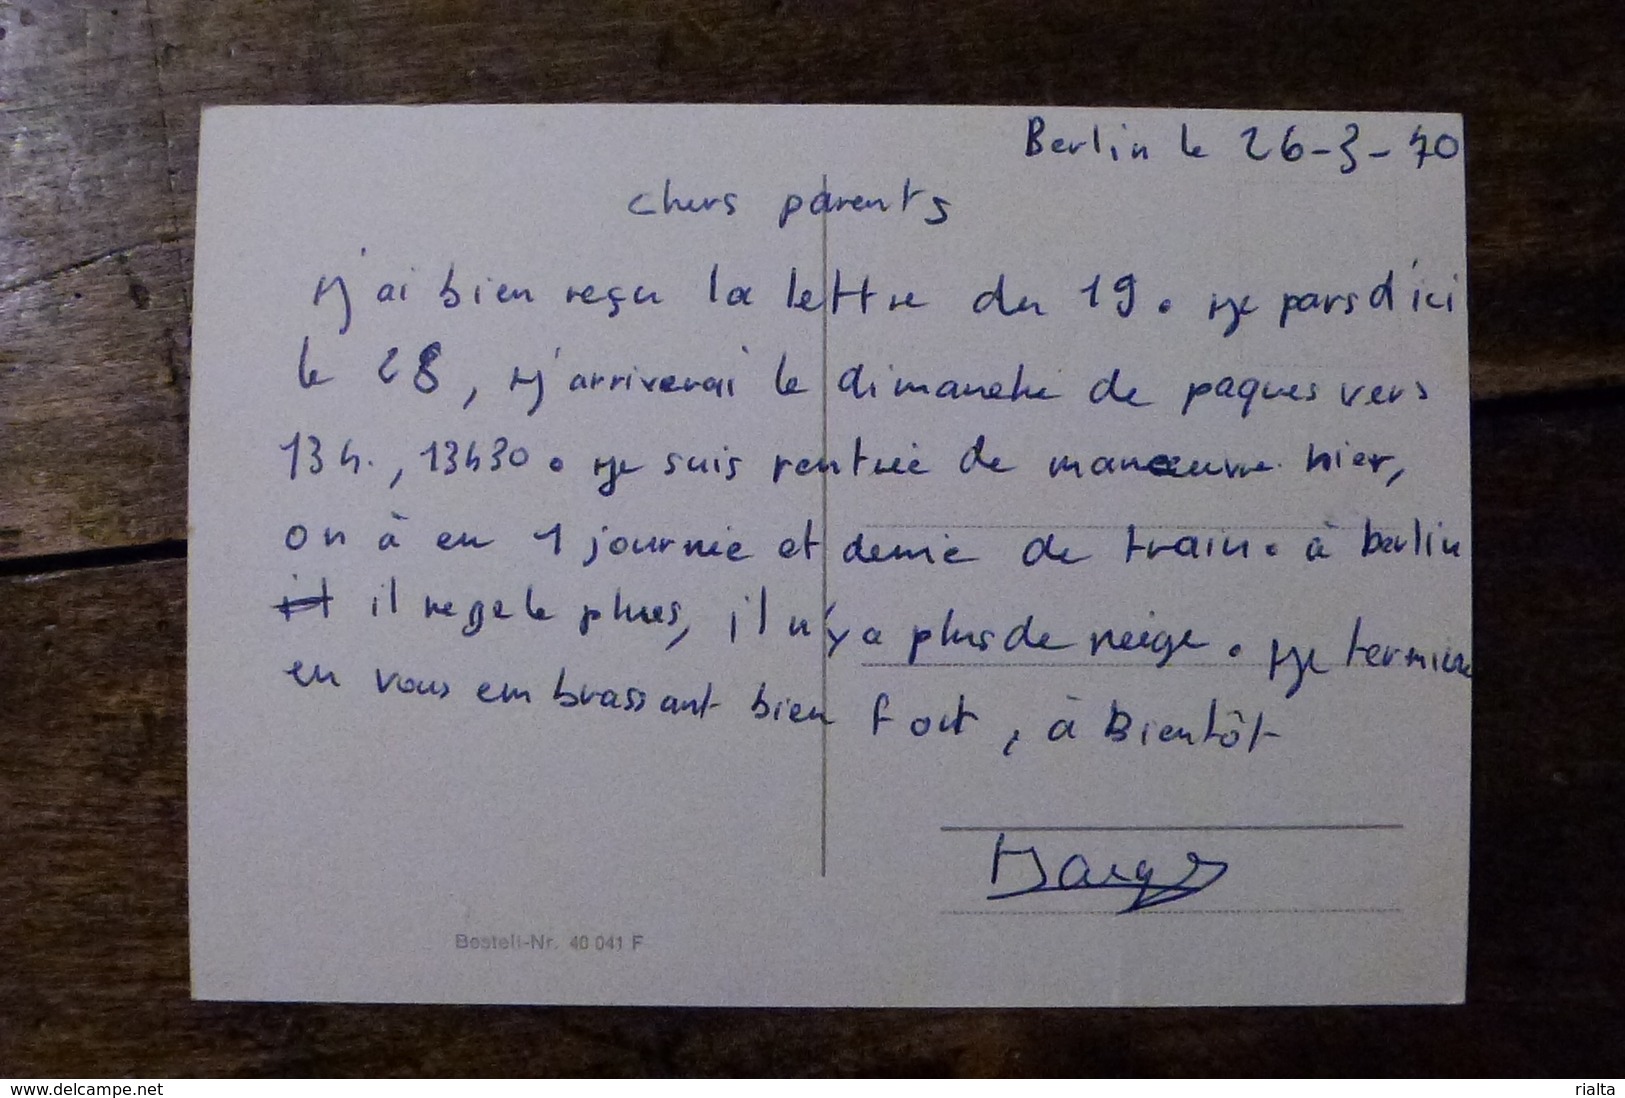 Berlin le 26-3-70
chers parents
j'ai bien reçu la lettre du 19. je pars d'ici
le 28, j'arriverai le dimanche de paques vers
13h., 13h30. je suis rentrée de manœuvre hier,
on à eu 1 journée et demie de train. à berlin
il regele plus, il n'y a plus de neige. je termine
en vous embrassant bien fort, à Bientôt
Bestell-Nr. 40 041 F
www.delcampe.net
rialta